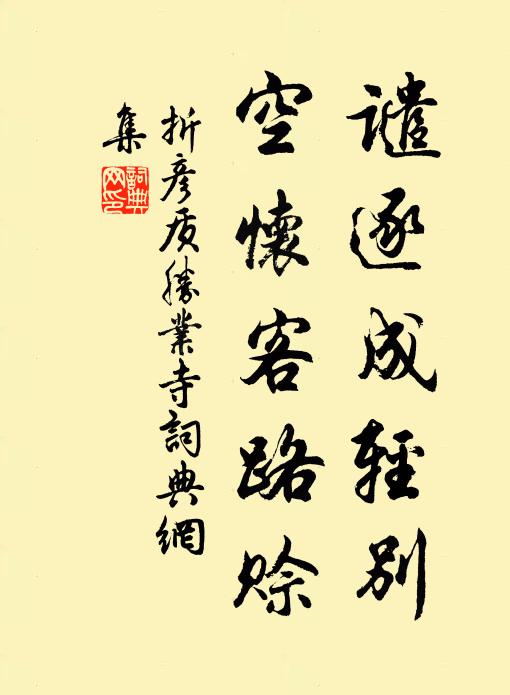 譴逐成輕別
空懷客路賒
折彥质勝業寺詞典網
集
詞典網印